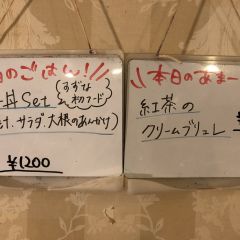 のごはん!
丼Set
すずな
初フード
け、サラダ、大根のあんかけ)
¥1200
本日のあまー
紅茶の
クリームブリュレ
¥